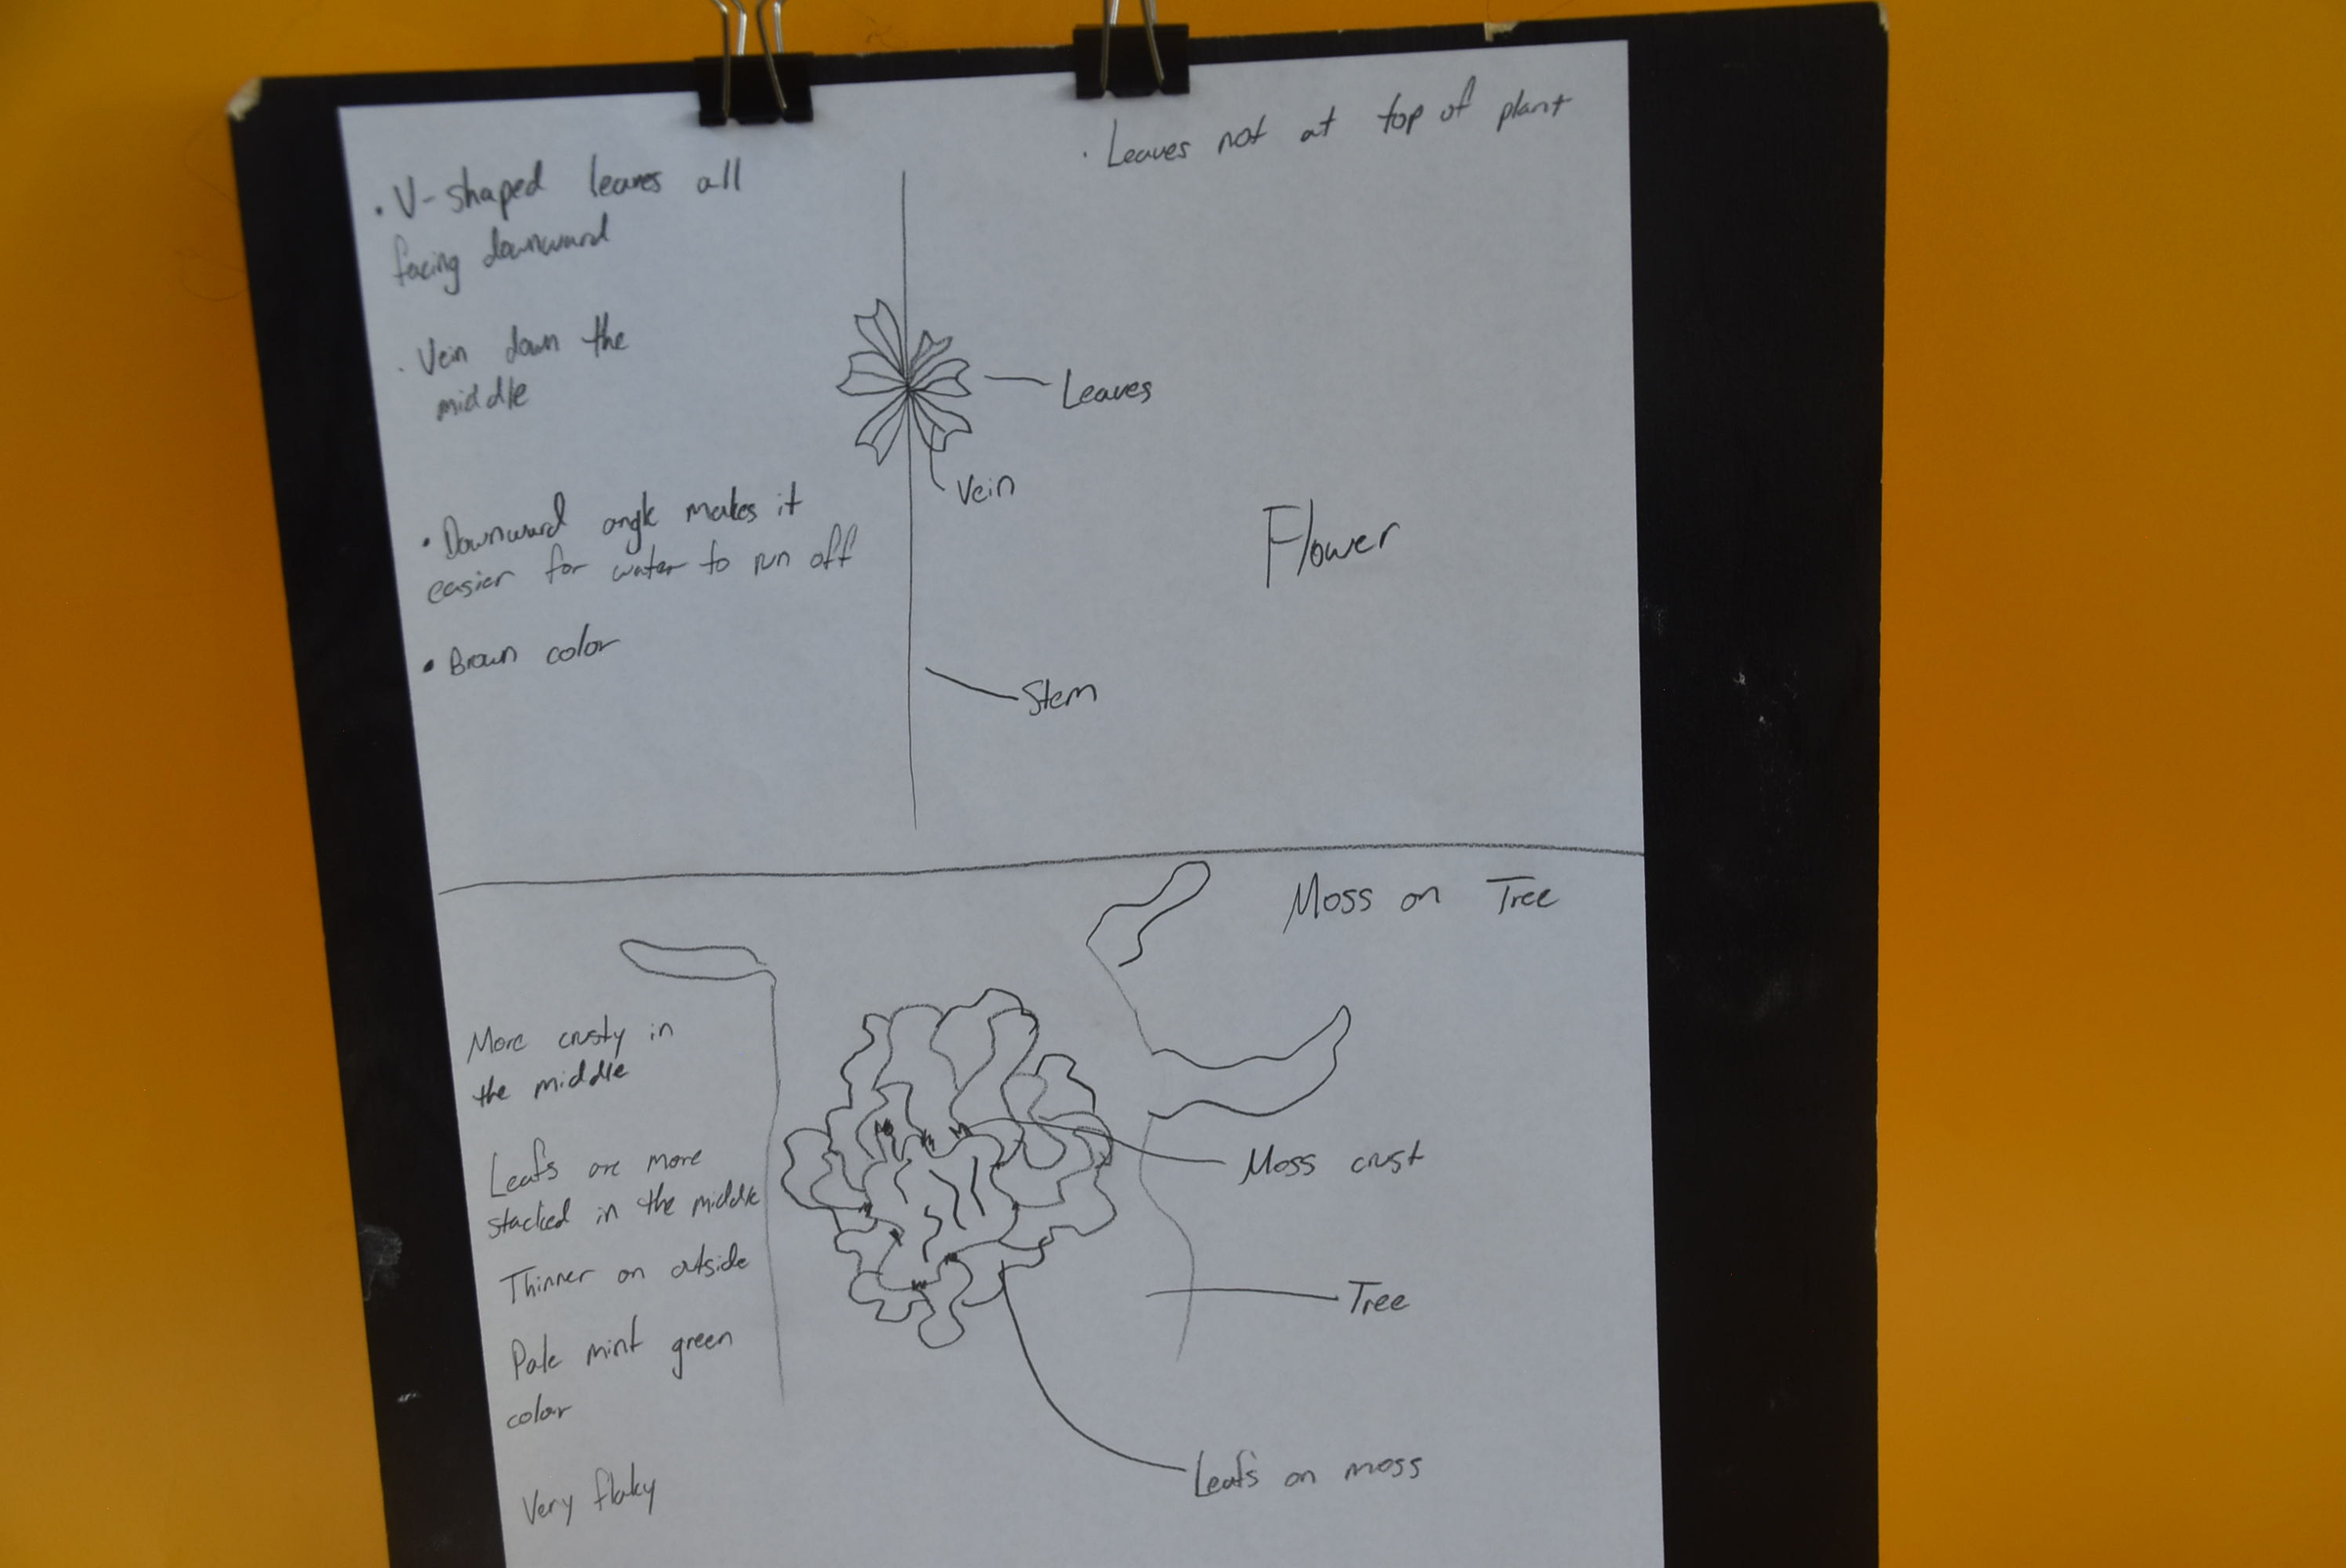 • V-shaped leaves all
facing downward
• Vein down the
middle
• Downward angle makes it
easier for water to run off
• Brown color
• Leaves not at top of plant
Leaves
Vein
Flower
Stem
Moss on Tree
More crusty in
the middle
Leafs are more
stacked in the middle
Thinner on outside
Pale mint green
color
Very flaky
Moss crust
Tree
Leafs on moss